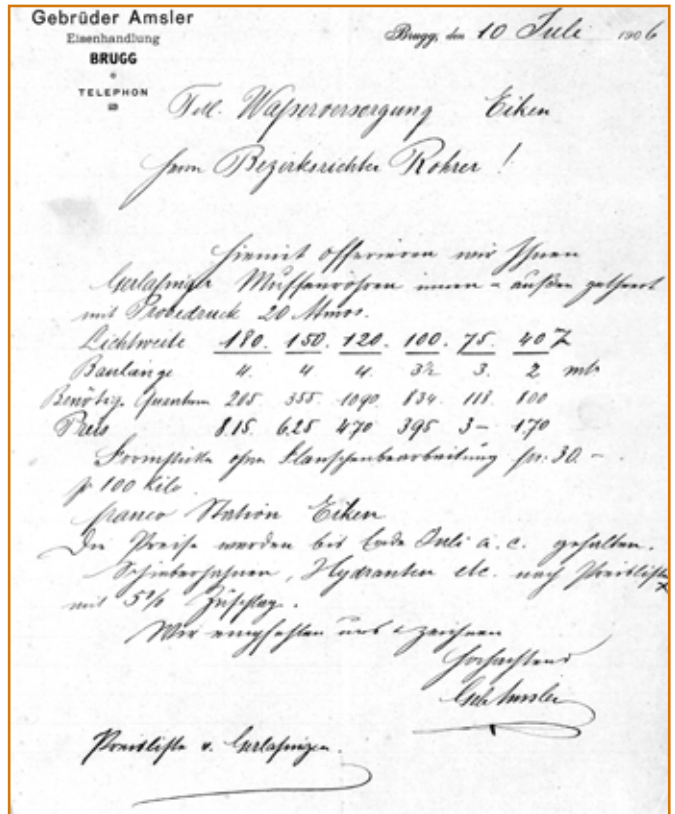 Gebrüder Amsler
Eisenhandlung
BRUGG
TELEPHON
Brugg, den 10 Juli 1906
Titl. Wasserversorgung Eiken
Herrn Bezirksrichter Rohrer!
Hiemit offerieren wir Ihnen
Gerlafinger Muffenröhren innen & außen getheert
mit Probedruck 20 Atmos.
Lichtweite 180. 150. 120. 100. 75. 40
Baulänge 4. 4 4. 3½ 3. 2 mtr
Benötig. Quantum 205 355 1090 834 118 800
Preis 8.15. 6.25 4.70 3.95 3– 1.70
Formstücke ohne Flanschenbearbeitung fr. 30.–
p 100 Kilo
franco Station Eiken
Die Preise werden bis Ende Juli a. c. gehalten.
Schieberhahnen, Hydranten etc. nach Preisliste
mit 5% Zuschlag.
Wir empfehlen uns & zeichnen
Hochachtend
Gebr Amsler
Preisliste v. Gerlafingen.